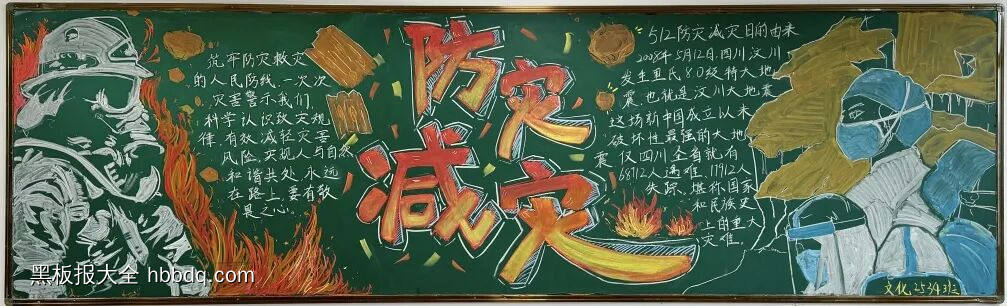 筑牢防灾救灾
的人民防线,一次次
灾害警示我们,
科学认识致灾规
律,有效减轻灾害
风险,实现人与自然
和谐共处,永远
在路上,要有敬
畏之心。
防灾
减灾
512防灾减灾日的由来
2008年5月12日,四川汶川
发生里氏8.0级特大地
震,也就是汶川大地震
这场新中国成立以来
破坏性最强的大地
震,仅四川全省就有
68712人遇难,17912人
失踪,堪称国家
和民族史
上的重大
灾难
文化2534班
黑板报大全 hbbdq.com